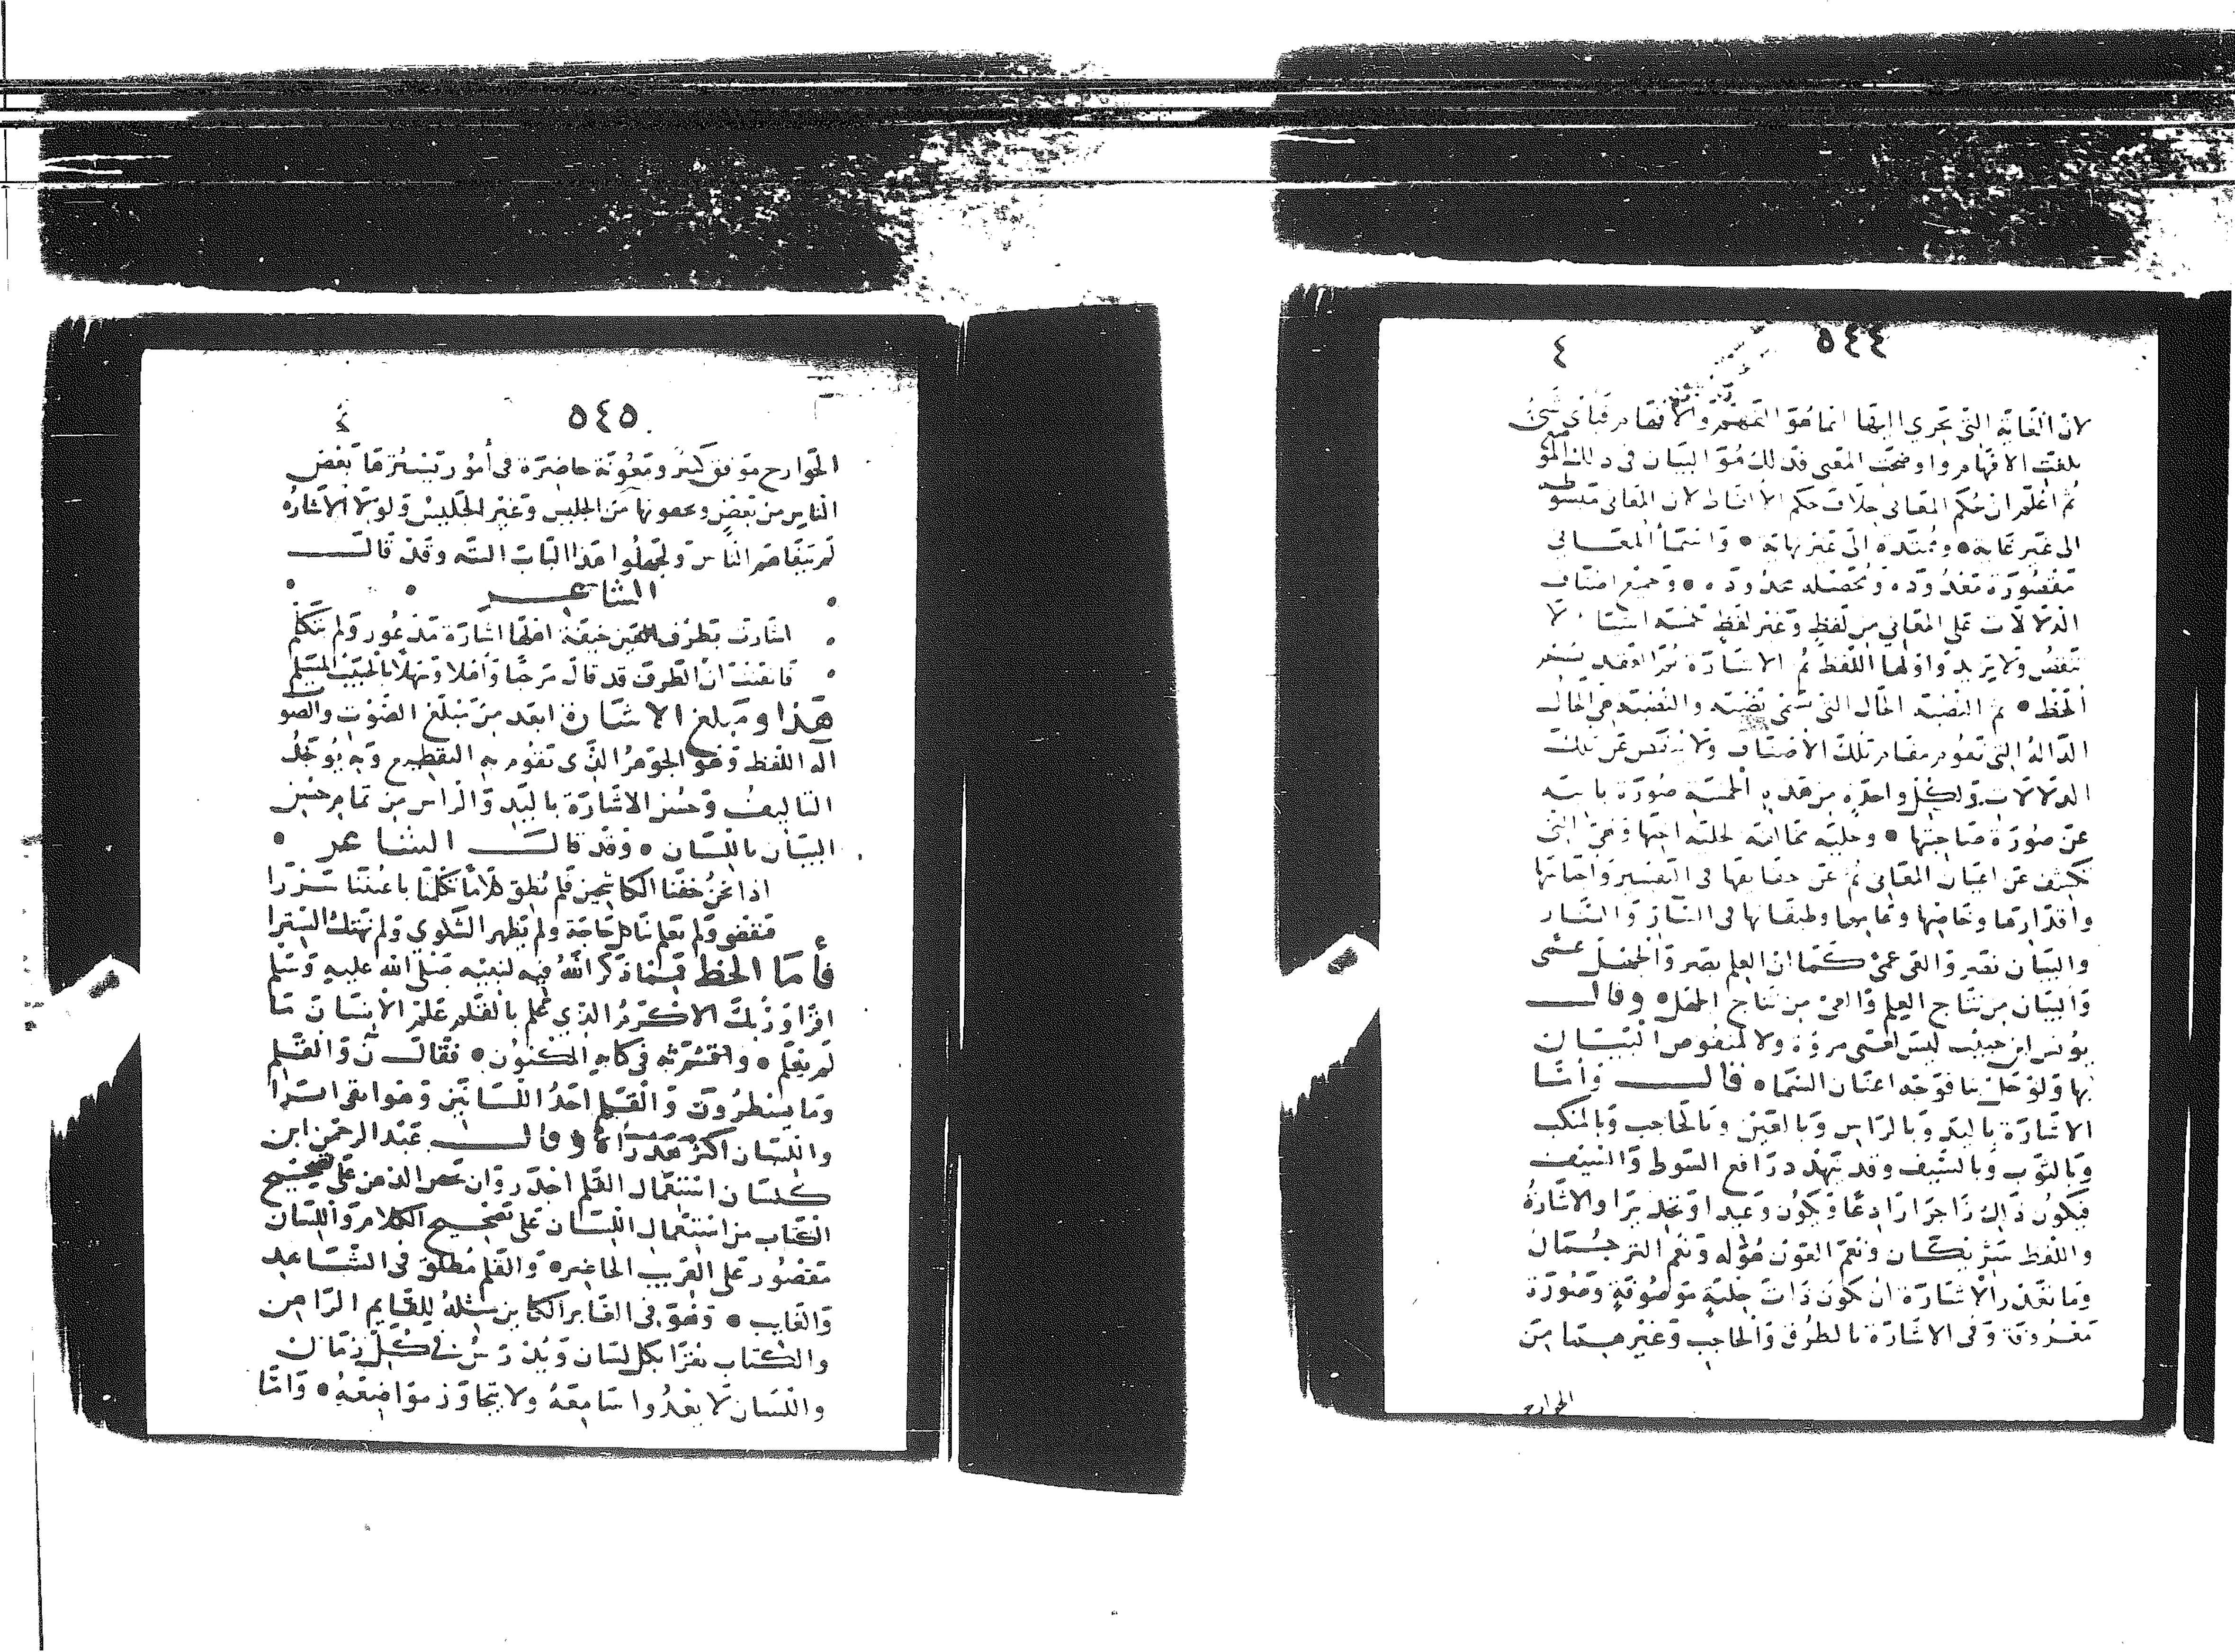 ٥٤٤
٤
لان الغاية التي تجري اليها انما هو الفهم والافهام فباي شيء
بلغت الافهام واوضحت المعنى فذلك هو البيان في ذلك المو
ثم اعلم ان حكم المعاني خلاف حكم الالفاظ لان المعاني مبسوطة
الى غير غاية • وممتدة الى غير نهاية • واسما المعاني
مقصورة معدودة ومحصله محدودة • وجميع اصناف
الدلالات على المعاني من لفظ وغير لفظ خمسة اشيا لا
تنقص ولا يزيد واولها اللفظ ثم الاشارة ثم العقد ثم
الخط • ثم النصبة الحال التي تسمى نصبة والنصبة هي الحال
الدالة التي تقوم مقام تلك الاصناف ولا تنقص عن تلك
الدلالات ولكل واحدة من هذه الخمسة صورة باينة
عن صورة صاحبتها • وحلية مخالفة لحلية اختها وهي التي
تكشف عن اعيان المعاني ثم عن حقايقها في التفسير واجناسها
واقدارها وخاصها وعامها وطبقاتها في السار والضار
والبيان بصر والعي عمى كما ان العلم بصر والجهل عمى
والبيان من نتاج العلم والعي من نتاج الجهل • وقال
يونس ابن حبيب ليس لعيي مروة ولا لمنقوص البيان
بها ولو حك بيافوخه اعنان السما • قال واما
الاشارة باليد وبالراس وبالعين وبالحاجب وبالمنكب
وبالثوب وبالسيف وقد يتهدد رافع السوط والسيف
فيكون ذلك زاجرا رادعا ويكون وعيدا وتحذيرا والاشارة
واللفظ شريكان ونعم العون هو له ونعم الترجمان
وما تعدو الاشارة ان تكون ذات حلية موصوفة وصورة
معروفة وفي الاشارة بالطرف والحاجب وغيرهما من
الجوارح
٥٤٥
٤
الجوارح مرفق كبير ومعونة حاضرة في أمور يسترها بعض
الناس من بعض ويخفونها من الجليس وغير الجليس ولولا الاشارة
لم يتفاهم الناس ولجهلوا هذا الباب البتة وقد قال
الشاعر
اشارت بطرف العين خيفة اهلها اشارة مذعور ولم تتكلم
فايقنت ان الطرف قد قال مرحبا وأهلا وسهلا بالحبيب المتيم
هذا ومبلغ الاشارة ابعد من مبلغ الصوت والصو
آلة اللفظ وهو الجوهر الذي تقوم به التقطيع وبه يوجد
التاليف وحسن الاشارة باليد والراس من تمام حسن
البيان باللسان • وقد قال الشاعر •
اذا نحن خفنا الكاشحين فلم نطق كلاما تكلمنا باعيننا شزرا
فنقضي ولم يعلم بنا كل حاجة ولم نظهر الشكوى ولم نهتك السترا
فأما الخط فمما ذكر الله فيه لنبيه صلى الله عليه وسلم
اقرا وربك الاكرم الذي علم بالقلم علم الانسان ما
لم يعلم • واقسم به في كتابه المكنون • فقال ن والقلم
وما يسطرون والقلم احد اللسانين وهو ابقى اثرا
واللسان اكثر هذرا • وقال عبد الرحمن ابن
كيسان استعمال القلم اجدر وان يحض الذهن على تصحيح
الكتاب من استعمال اللسان على تصحيح الكلام واللسان
مقصور على القريب الحاضر • والقلم مطلق في الشاهد
والغايب • وهو في الغابر الكاين مثله للقايم الراهن
والكتاب يقرا بكل لسان ويدرس في كل زمان
واللسان لا يعدوا سامعه ولا يتجاوز مواضعه • واما